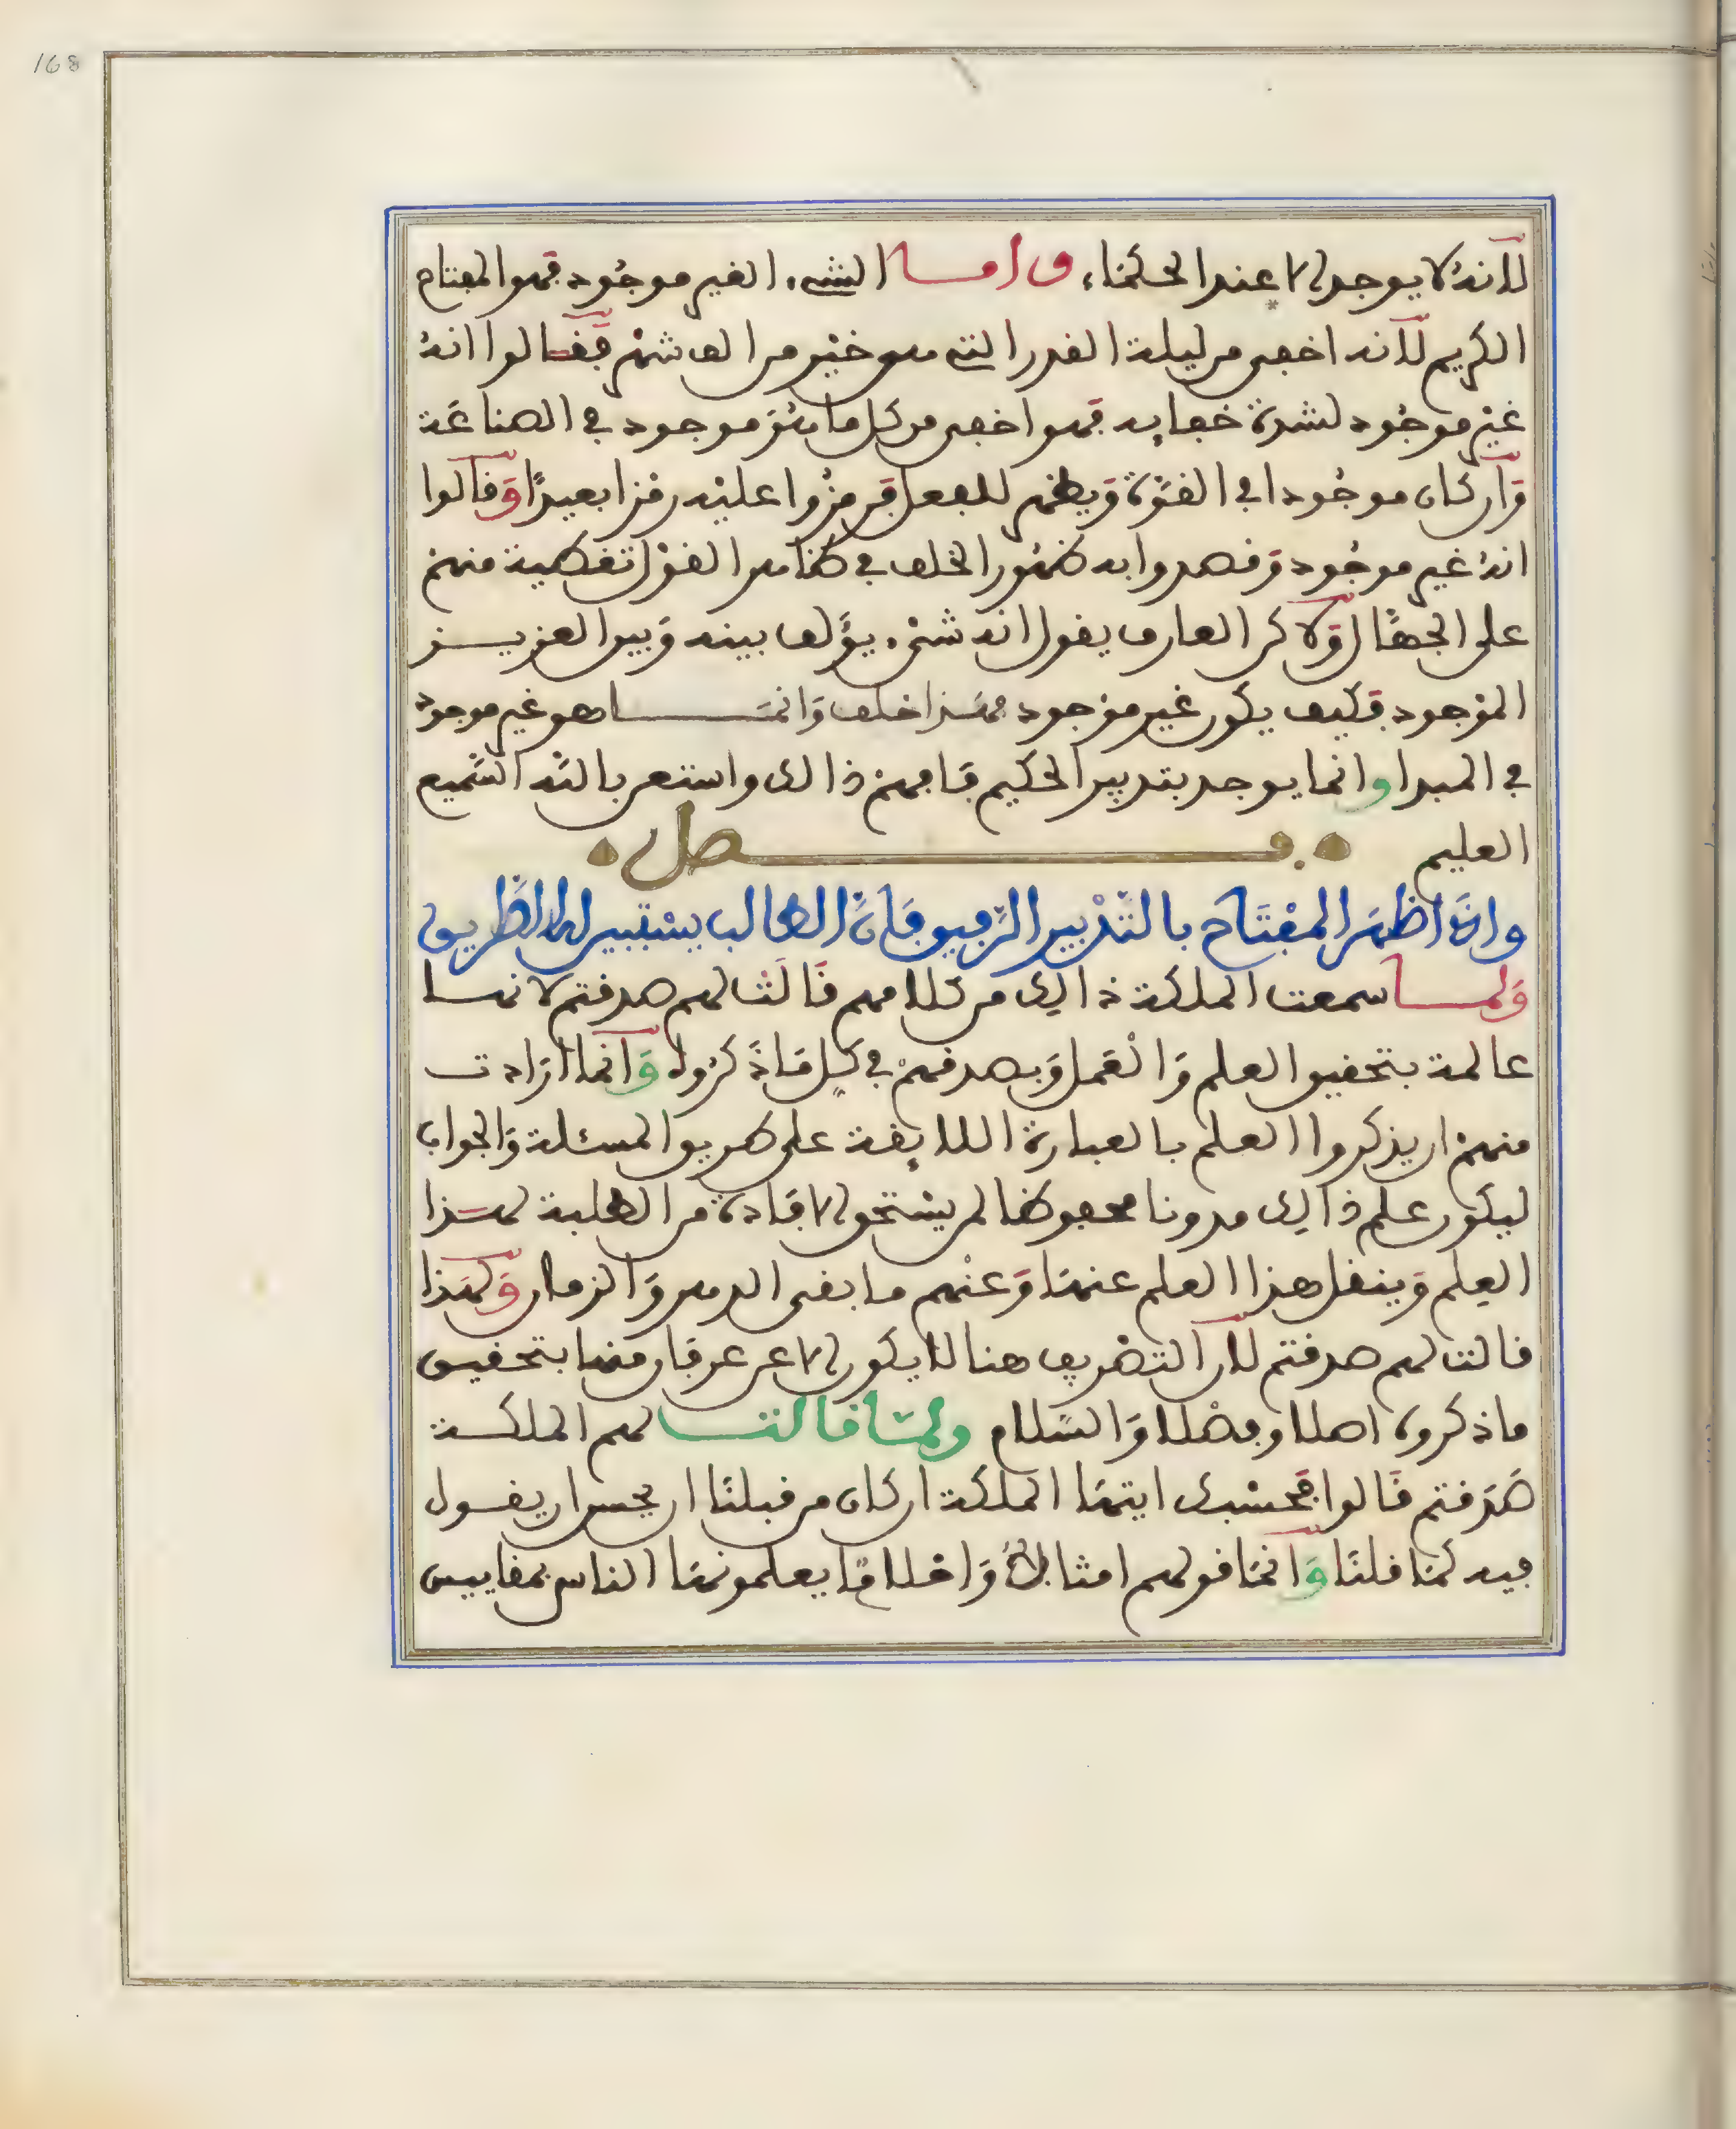 168
لأنه لا يوجد إلا عند الحكماء، واما الشيء الغير موجود فهو المفتاح
الكريم لأنه اخفى من ليلة القدر التي هي خير من الف شهر فقالوا انه
غير موجود لشدة خفايه فهو اخفى من كل ما هو موجود في الصناعة
وان كان موجودا في القوة ويظهر للفعل فرمزوا عليه رمزا بعيدا وقالوا
انه غير موجود وقصدوا به ظهور الخلف في ظاهر القول تغطية منهم
على الجهال ولاكن العارف يقول انه شيء يؤلف بينه وبين العزيز
الموجود فكيف يكون غير موجود فهذا خلف وانما هو غير موجود
في المبدا وانما يوجد بتدبير الحكيم فافهم ذالك واستعن بالله السميع
العليم فصل
واذا ظهر المفتاح بالتدبير الرفيق فان الطالب يستبين له الطريق
ولما سمعت الملكة ذالك من كلامهم قالت لهم صدقتم لانها
عالمة بتحقيق العلم والعمل وبصدقهم في كل ما ذكروه وانما ارادت
منهم ان يذكروا العلم بالعبارة اللايقة على طريق المسئلة والجواب
ليكون علم ذالك مدونا محفوظا لمن يستحق الافادة من الطلبة لهذا
العلم وينقل هذا العلم عنها وعنهم ما بقى الدهر والزمان ولهذا
قالت لهم صدقتم لأن التصريف هنا لا يكون الا عن عرفان منها بتحقيق
ما ذكروه اصلا وفصلا والسلام ولما قالت لهم الملكة
صدقتم قالوا فحسبك ايتها الملكة ان كان من قبلنا ان يحسن ان يقول
فيه كما قلنا وانما قولهم امثالا واخلاقا يعلمونها الناس بمقاييس